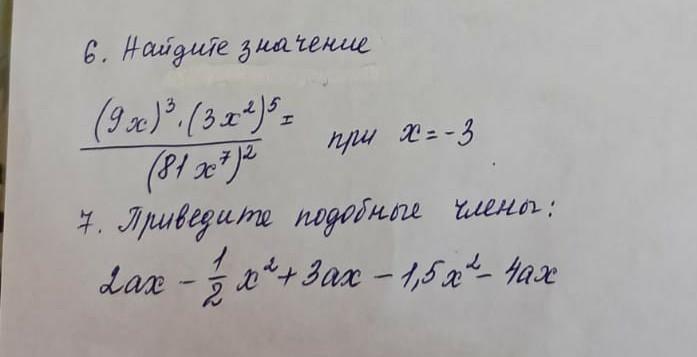 6. Найдите значение
(9x)³·(3x²)⁵ =
(81x⁷)²
при x = -3
7. Приведите подобные члены:
2ax - 1/2 x² + 3ax - 1,5x² - 4ax